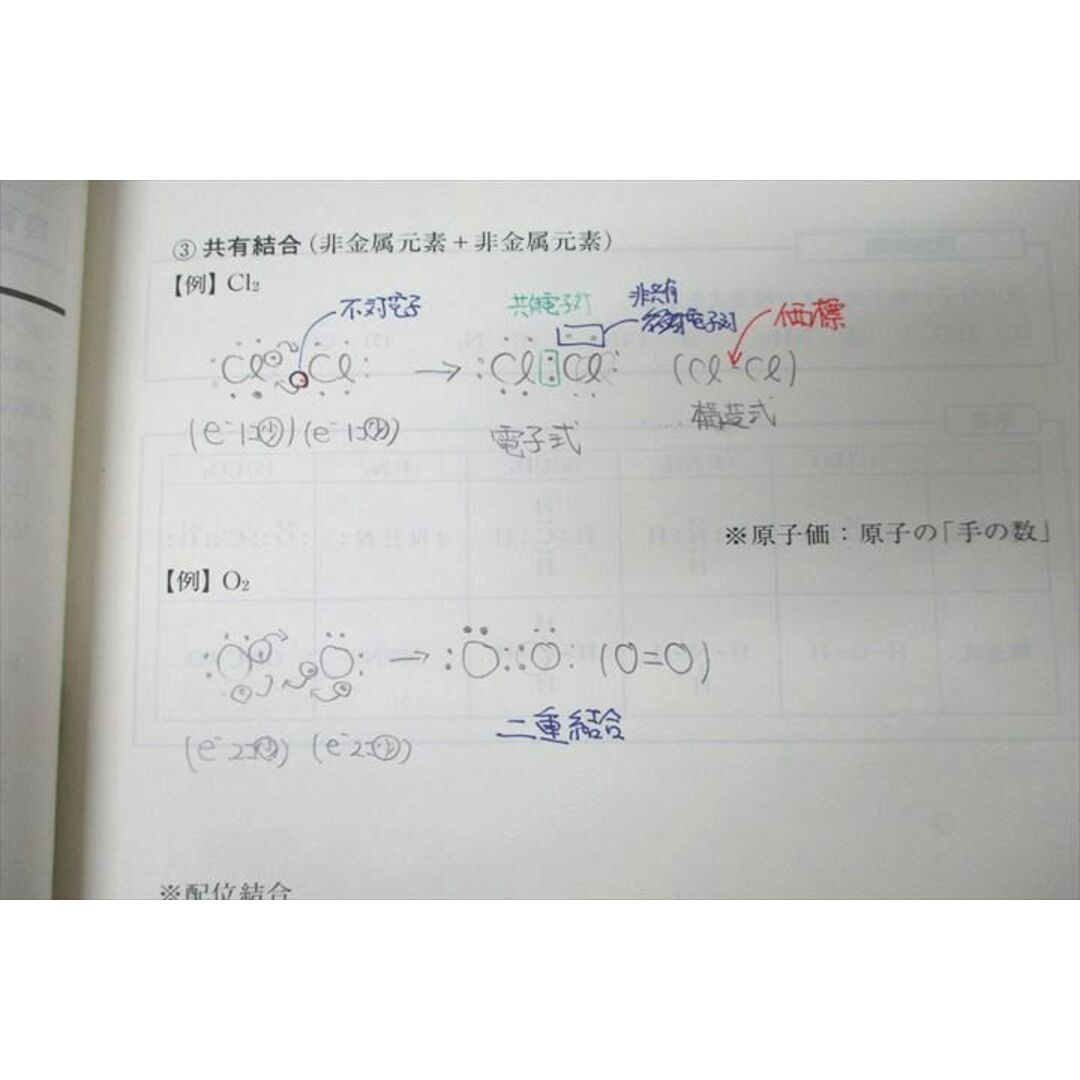 ③ 共有結合(非金属元素+非金属元素)
【例】Cl₂
不対電子 共有電子対 非共有電子対 価標
Cl Cl: → :Cl:Cl: (Cl-Cl)
(e⁻1コ少) (e⁻1コ少) 電子式 構造式
※原子価:原子の「手の数」
【例】O₂
O O → :O::O: (O=O)
二重結合
(e⁻2コ少) (e⁻2コ少)
※配位結合